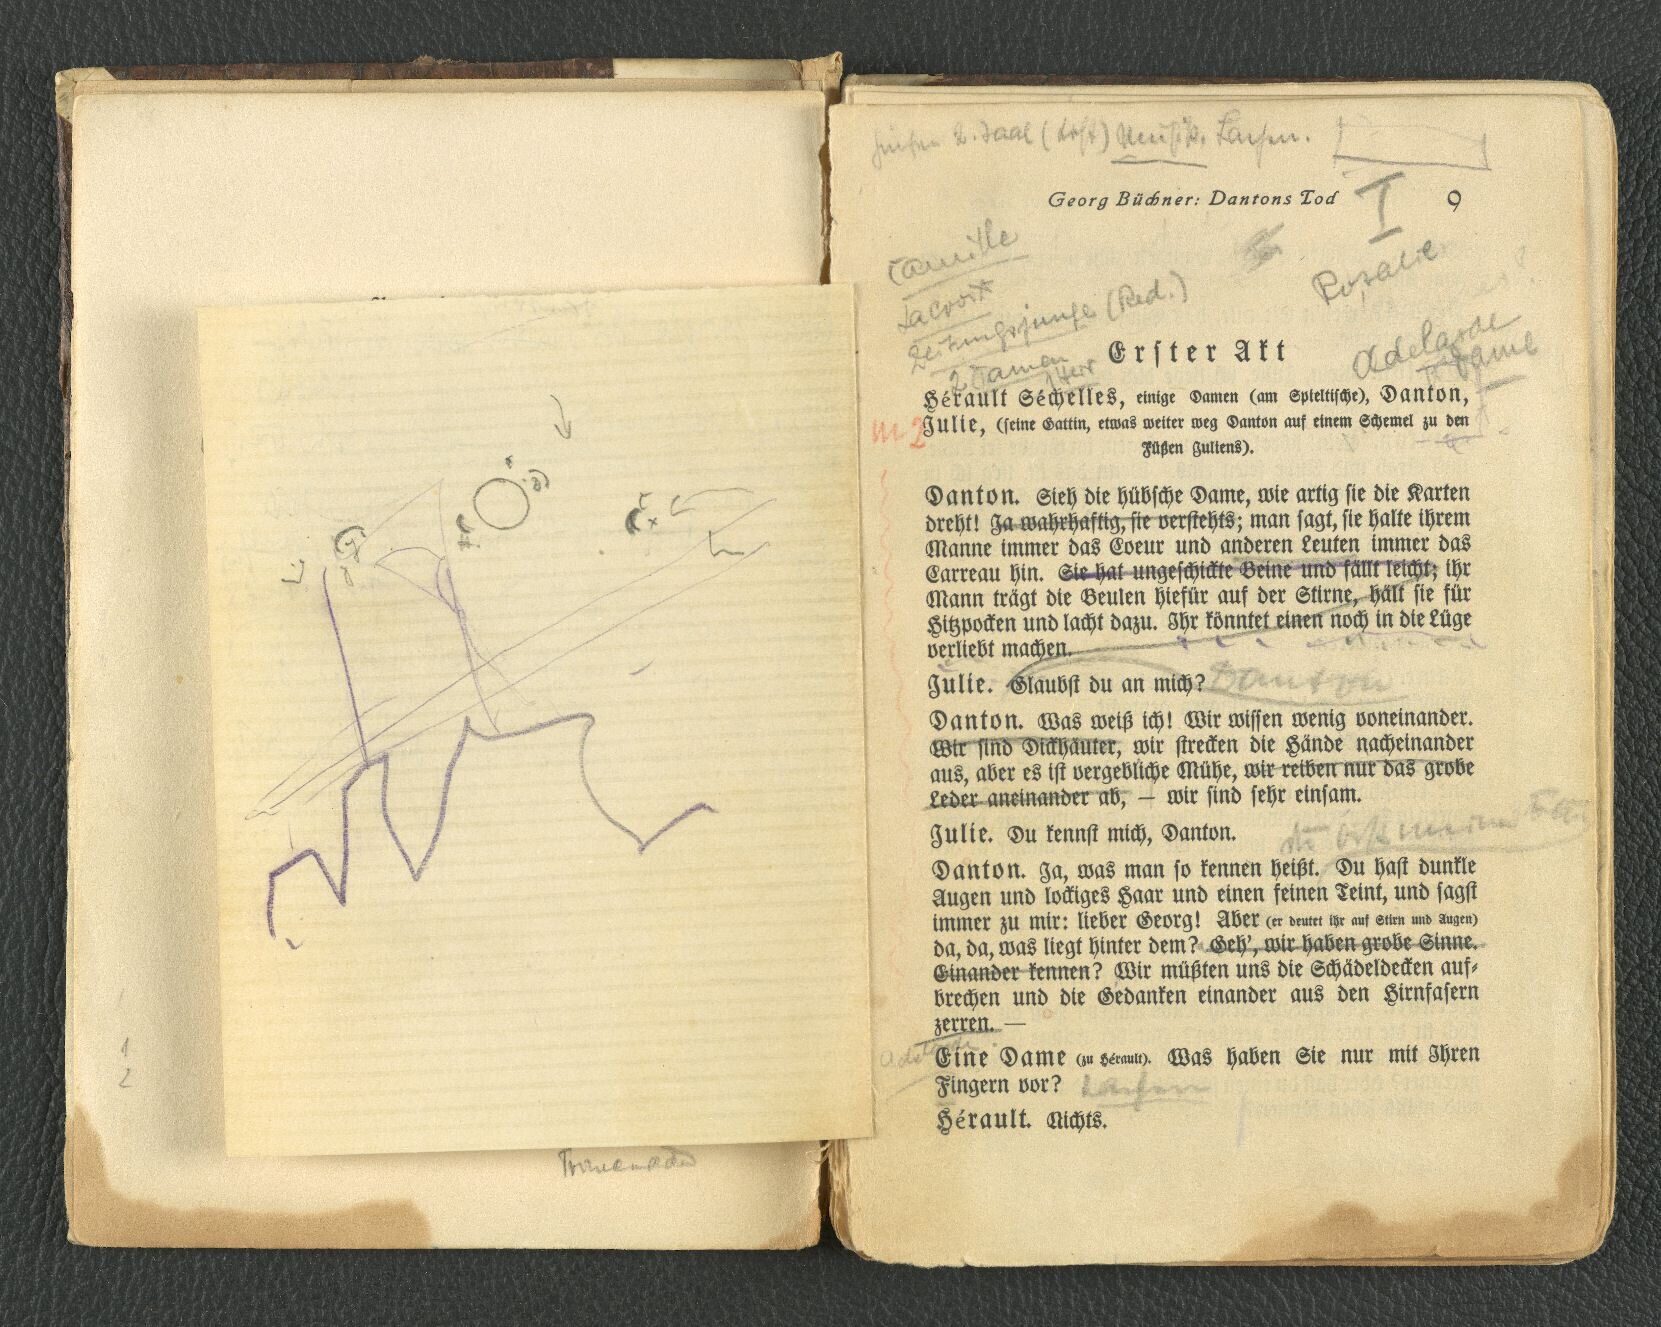 1
2
Saal Musik. Lachen.
Georg Büchner: Dantons Tod I 9
Camille
Lacroix
Rosalie
Zeitungsjunge (Red.)
2 Damen
1 Herr
Adelaide
Dame
Erster Akt
Hérault Séchelles, einige Damen (am Spieltische), Danton,
m 2
Julie, (seine Gattin, etwas weiter weg Danton auf einem Schemel zu den
Füßen Juliens).
Danton. Sieh die hübsche Dame, wie artig sie die Karten
dreht! Ja wahrhaftig, sie verstehts; man sagt, sie halte ihrem
Manne immer das Coeur und anderen Leuten immer das
Carreau hin. Sie hat ungeschickte Beine und fällt leicht; ihr
Mann trägt die Beulen hiefür auf der Stirne, hält sie für
Hitzpocken und lacht dazu. Ihr könntet einen noch in die Lüge
verliebt machen.
Julie. Glaubst du an mich? Danton
Danton. Was weiß ich! Wir wissen wenig voneinander.
Wir sind Dickhäuter, wir strecken die Hände nacheinander
aus, aber es ist vergebliche Mühe, wir reiben nur das grobe
Leder aneinander ab, — wir sind sehr einsam.
Julie. Du kennst mich, Danton.
Danton. Ja, was man so kennen heißt. Du hast dunkle
Augen und lockiges Haar und einen feinen Teint, und sagst
immer zu mir: lieber Georg! Aber (er deutet ihr auf Stirn und Augen)
da, da, was liegt hinter dem? Geh', wir haben grobe Sinne.
Einander kennen? Wir müßten uns die Schädeldecken auf-
brechen und die Gedanken einander aus den Hirnfasern
zerren. —
Adelaide
Eine Dame (zu Hérault). Was haben Sie nur mit Ihren
Fingern vor? Lachen
Hérault. Nichts.